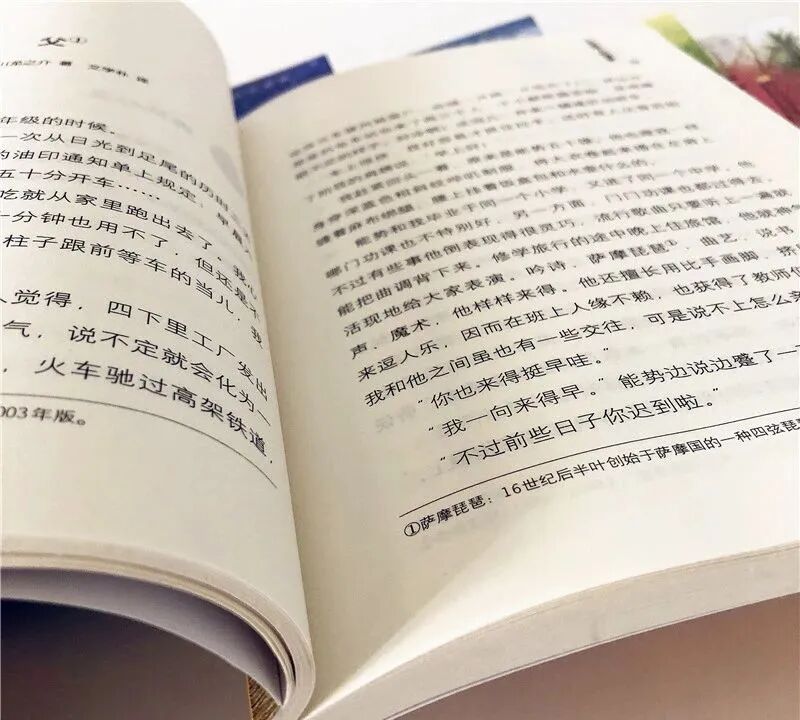 父①
川龙之介 著 文学朴 译
年级的时候。
一次从日光到足尾的历时
的油印通知单上规定，早晨
五十分开车……
吃就从家里跑出去了。我心
十分钟也用不了，但还是不
柱子跟前等车的当儿，我
人觉得，四下里工厂发出
气，说不定就会化为一
，火车驰过高架铁道，
003年版。
身穿深蓝色粗斜纹哔叽制服
缠着麻布绑腿，腰上挂着饭盒包和水壶什么的。
能势和我毕业于同一个小学，又进了同一个中学。他
哪门功课也不特别好，另一方面，门门功课也都过得去。
不过有些事他倒表现得很灵巧，流行歌曲只要听上一遍就
能把曲调背下来。修学旅行的途中晚上住旅馆，他就神气
活现地给大家表演。吟诗，萨摩琵琶①，曲艺，说书
声，魔术，他样样来得。他还擅长用比手画脚，挤
来逗人乐，因而在班上人缘不赖，也获得了教师们
我和他之间虽也有一些交往，可是说不上怎么亲
“你也来得挺早哇。”
“我一向来得早。”能势边说边蹙了一
“不过前些日子你迟到啦。”
①萨摩琵琶：16世纪后半叶创始于萨摩国的一种四弦琵琶